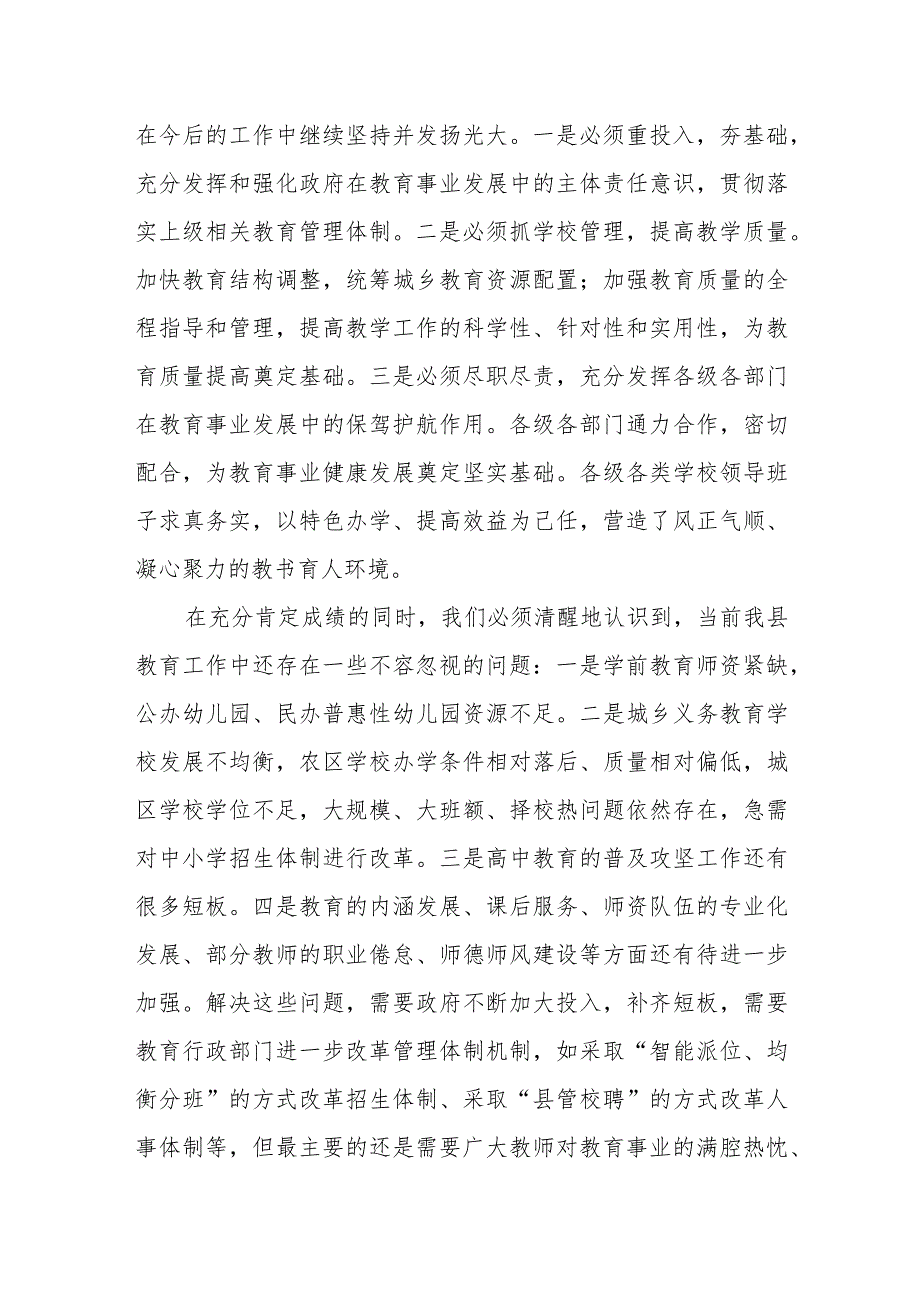 在今后的工作中继续坚持并发扬光大。一是必须重投入，夯基础，
充分发挥和强化政府在教育事业发展中的主体责任意识，贯彻落
实上级相关教育管理体制。二是必须抓学校管理，提高教学质量。
加快教育结构调整，统筹城乡教育资源配置；加强教育质量的全
程指导和管理，提高教学工作的科学性、针对性和实用性，为教
育质量提高奠定基础。三是必须尽职尽责，充分发挥各级各部门
在教育事业发展中的保驾护航作用。各级各部门通力合作，密切
配合，为教育事业健康发展奠定坚实基础。各级各类学校领导班
子求真务实，以特色办学、提高效益为己任，营造了风正气顺、
凝心聚力的教书育人环境。
在充分肯定成绩的同时，我们必须清醒地认识到，当前我县
教育工作中还存在一些不容忽视的问题：一是学前教育师资紧缺，
公办幼儿园、民办普惠性幼儿园资源不足。二是城乡义务教育学
校发展不均衡，农区学校办学条件相对落后、质量相对偏低，城
区学校学位不足，大规模、大班额、择校热问题依然存在，急需
对中小学招生体制进行改革。三是高中教育的普及攻坚工作还有
很多短板。四是教育的内涵发展、课后服务、师资队伍的专业化
发展、部分教师的职业倦怠、师德师风建设等方面还有待进一步
加强。解决这些问题，需要政府不断加大投入，补齐短板，需要
教育行政部门进一步改革管理体制机制，如采取“智能派位、均
衡分班”的方式改革招生体制、采取“县管校聘”的方式改革人
事体制等，但最主要的还是需要广大教师对教育事业的满腔热忱、